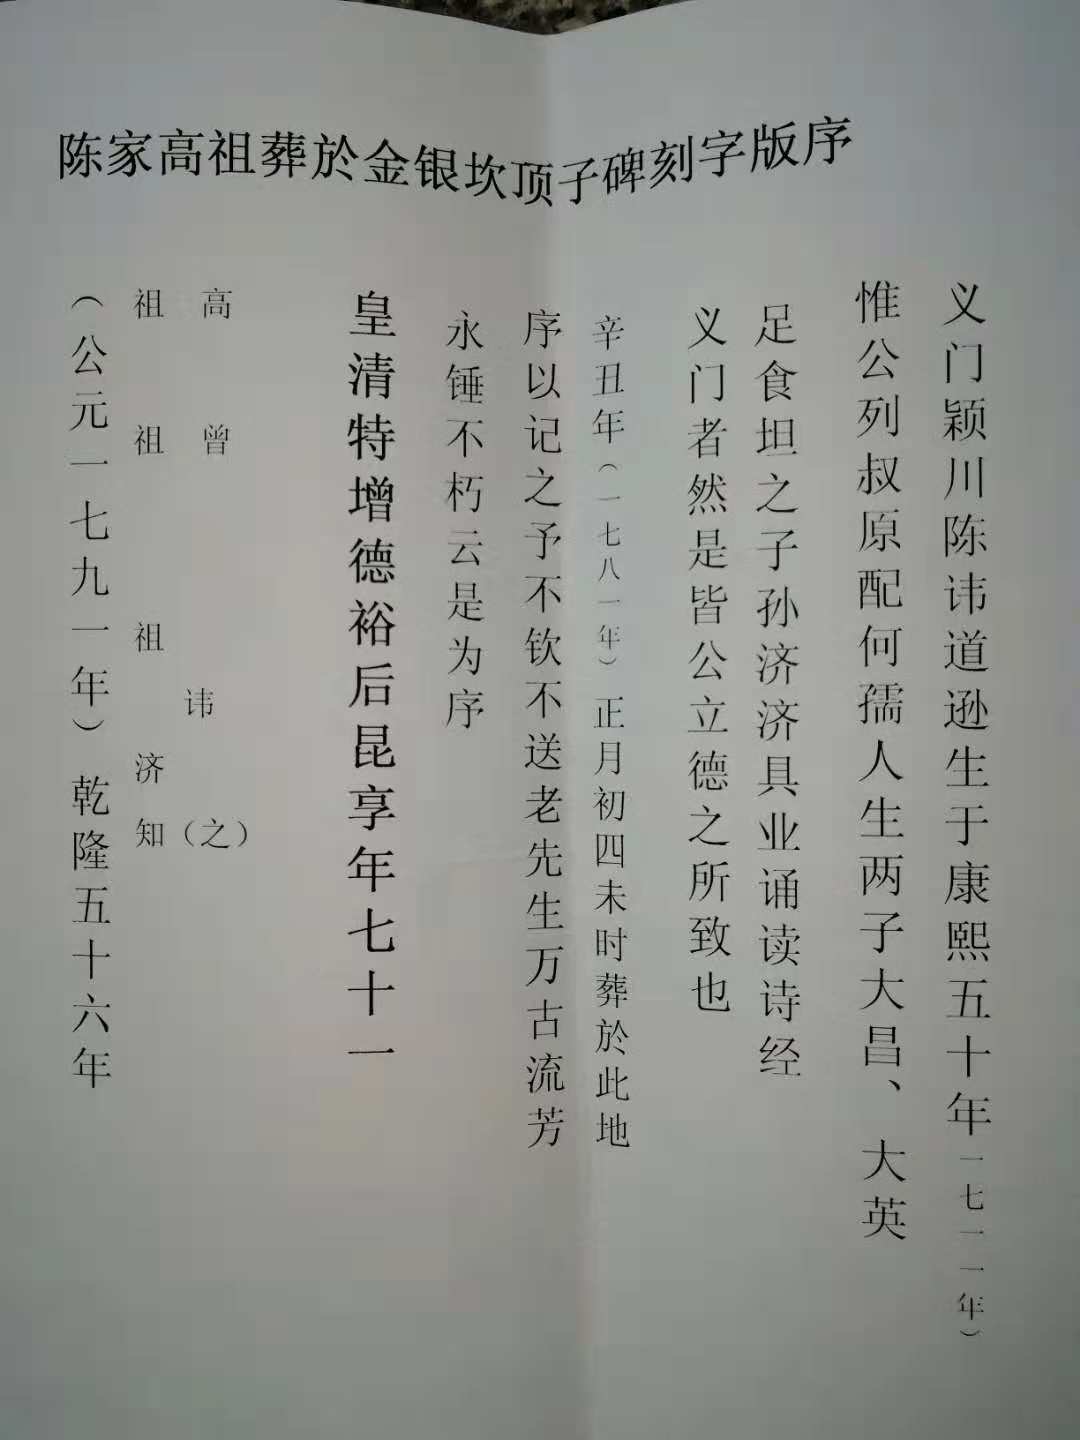 陈家高祖葬於金银坎顶子碑刻字版序
义门颖川陈讳道逊生于康熙五十年一七一一年）
惟公列叔原配何孺人生两子大昌、大英
足食坦之子孙济济具业诵读诗经
义门者然是皆公立德之所致也
辛丑年（一七八一年）正月初四未时葬於此地
序以记之予不钦不送老先生万古流芳
永锤不朽云是为序
皇清特增德裕后昆享年七十一
高 曾 讳（之）
祖 祖 祖 济知
（公元一七九一年）乾隆五十六年